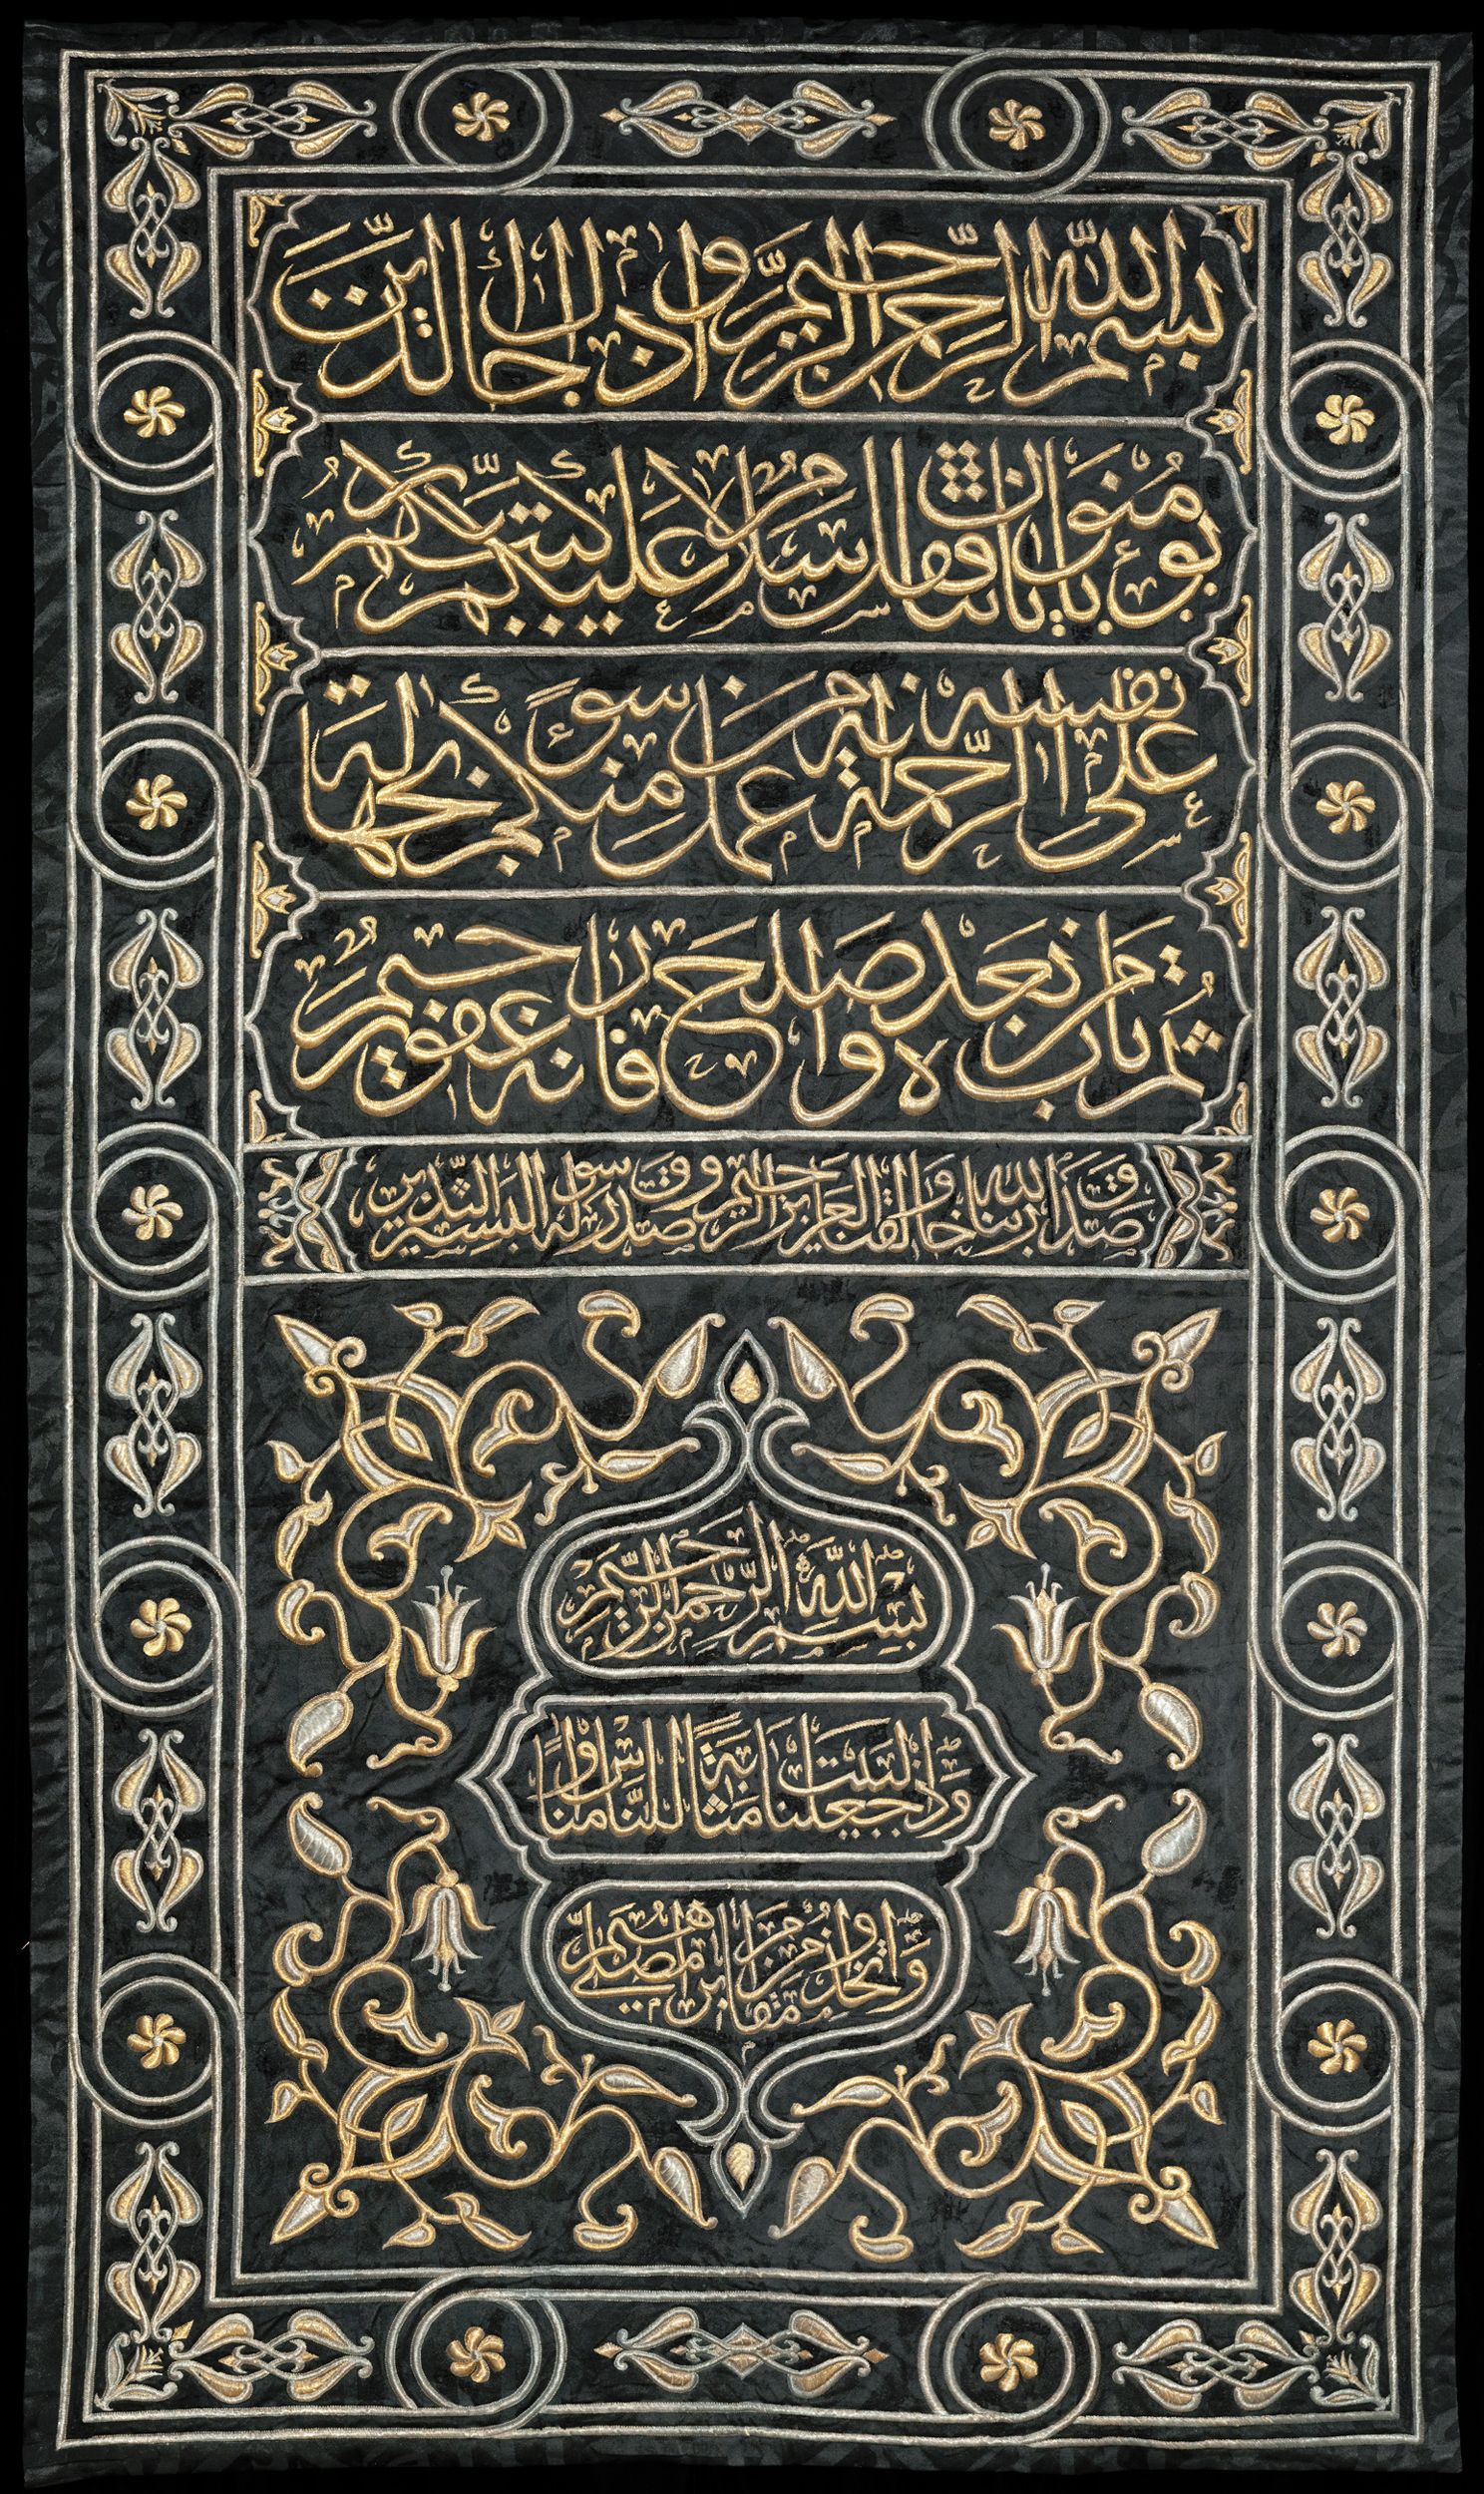 بسم الله الرحمن الرحيم وإذا جاءك الذين
يؤمنون بآياتنا فقل سلام عليكم كتب ربكم
على نفسه الرحمة أنه من عمل منكم سوءا بجهالة
ثم تاب من بعده وأصلح فأنه غفور رحيم
صدق الله ربنا وخالقنا العزيز الرحيم وصدق رسوله البشير النذير
بسم الله الرحمن الرحيم
وإذ جعلنا البيت مثابة للناس وأمنا
واتخذوا من مقام إبراهيم مصلى